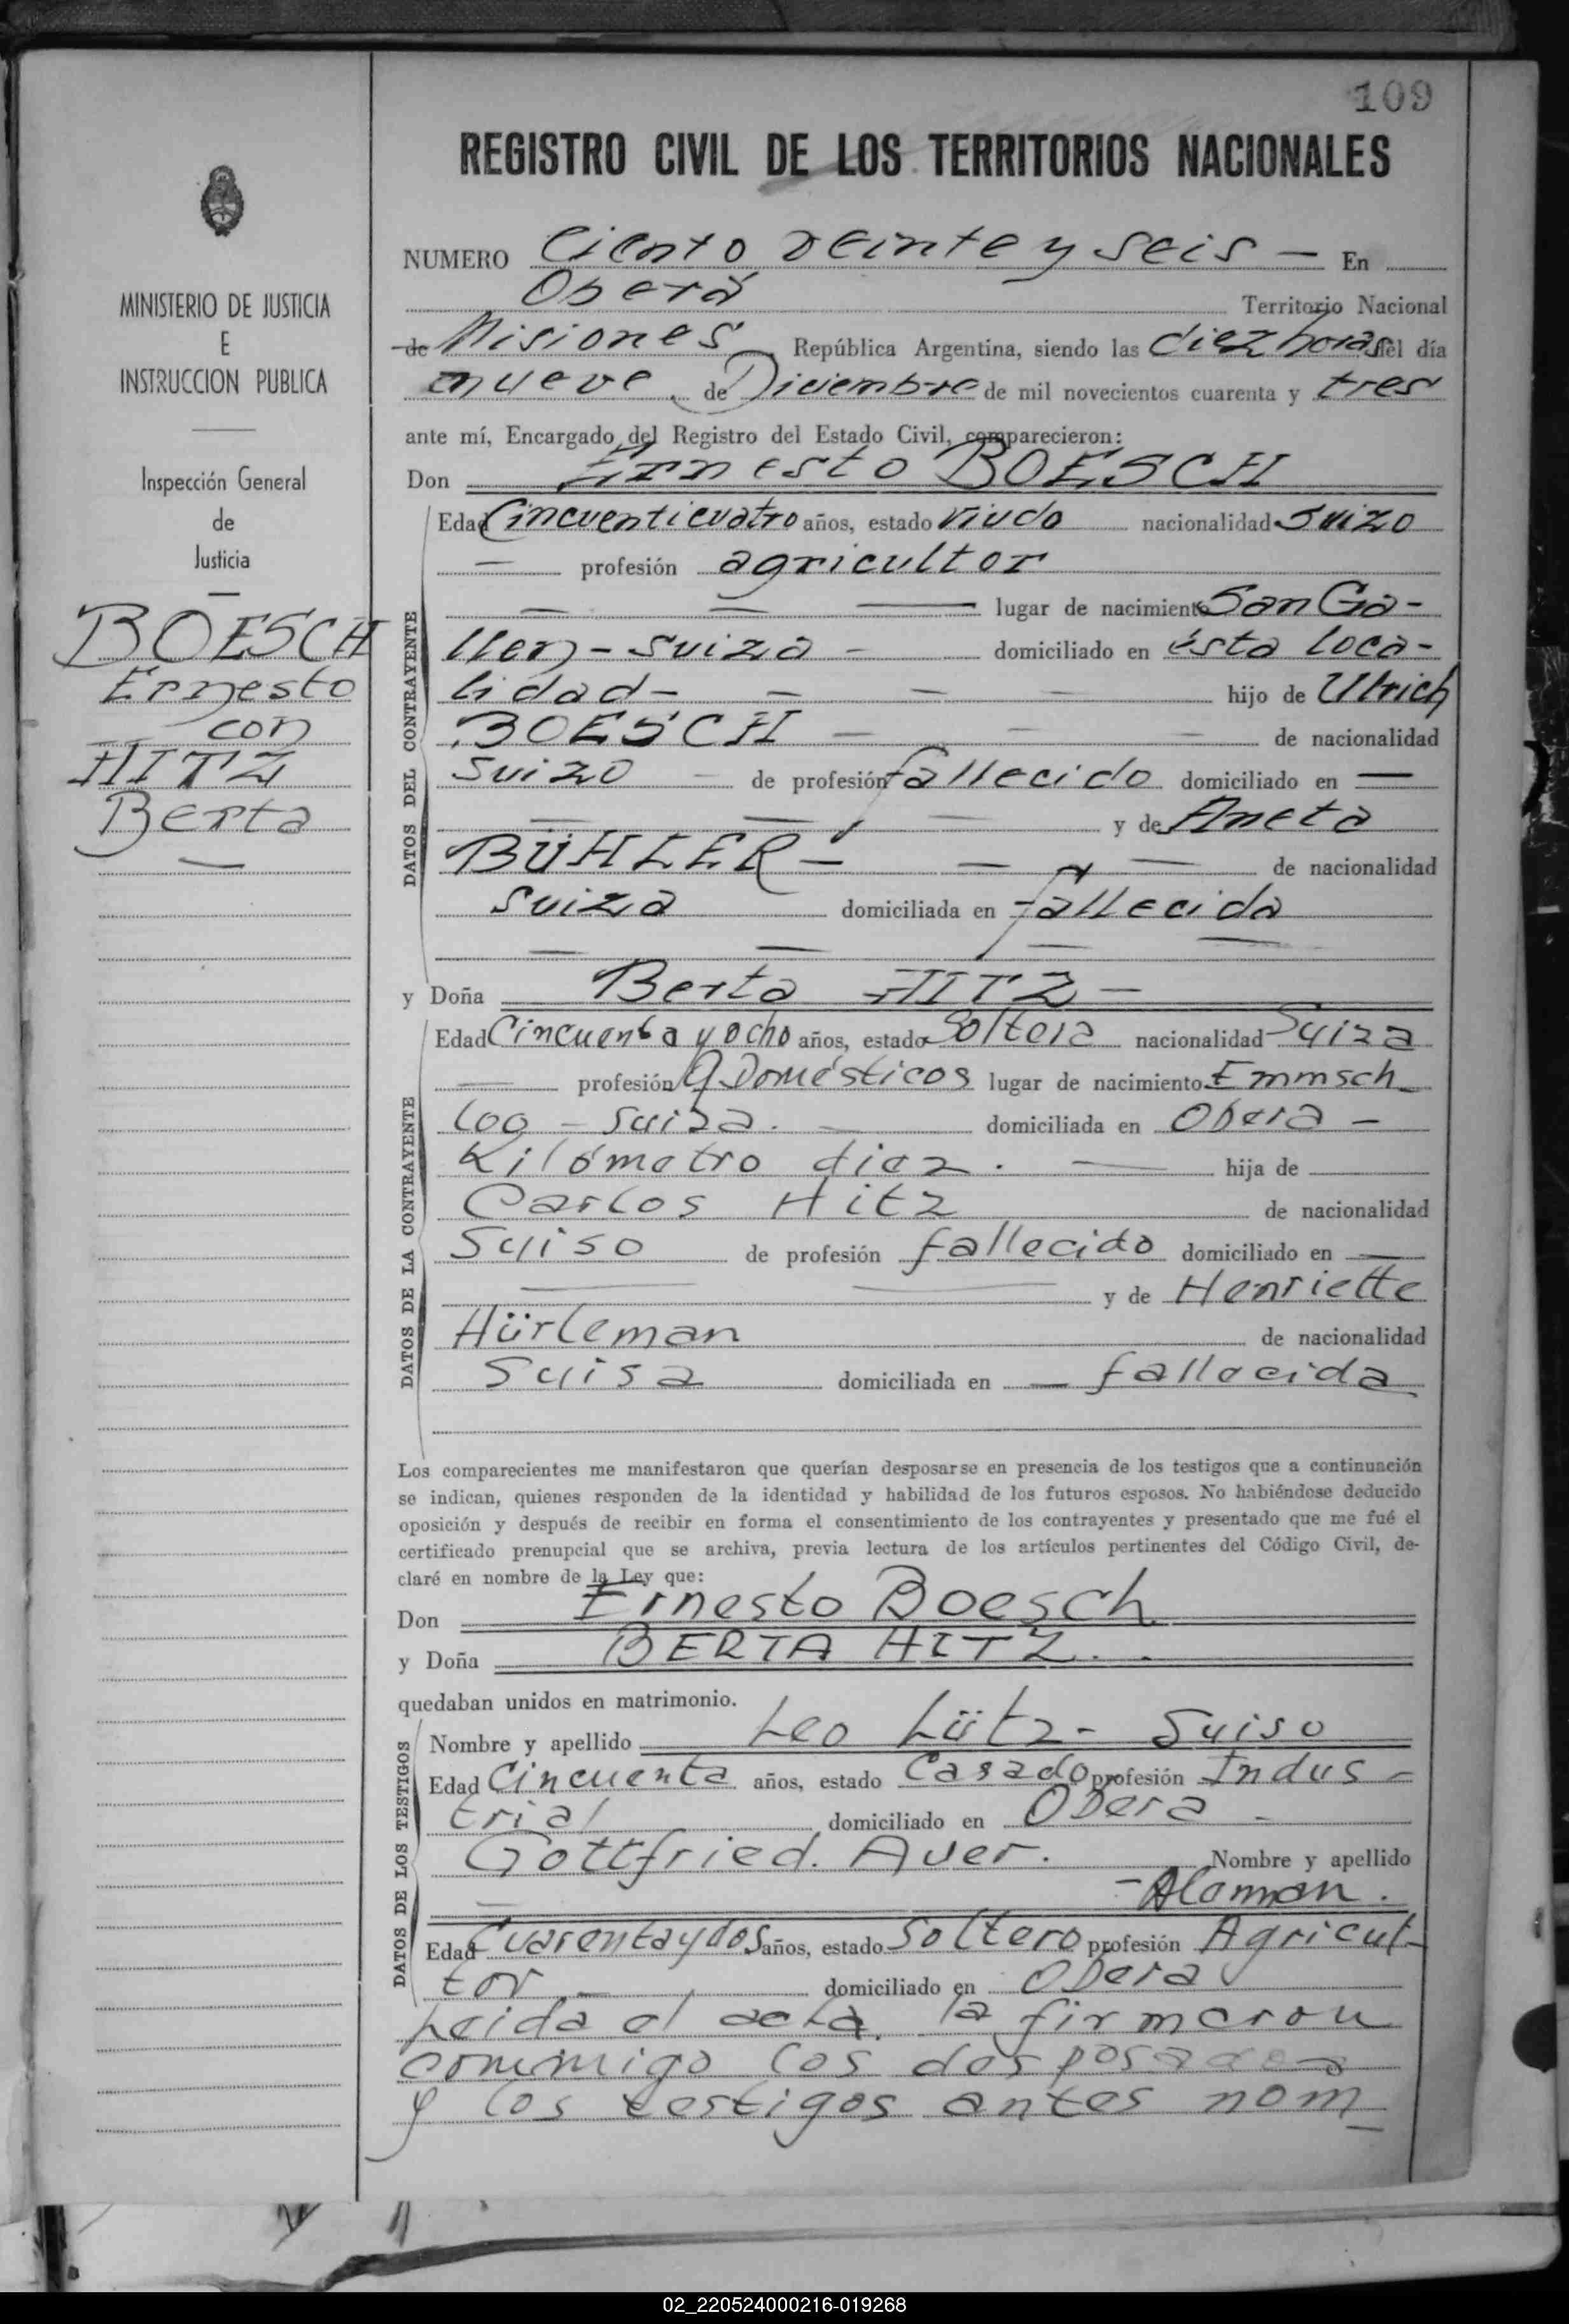 109
REGISTRO CIVIL DE LOS TERRITORIOS NACIONALES
MINISTERIO DE JUSTICIA
E
INSTRUCCION PUBLICA
Inspección General
de
Justicia
BOESCH
Ernesto
con
HITZ
Berta
NUMERO Ciento veinte y seis — En
Oberá Territorio Nacional
de Misiones República Argentina, siendo las diez horas del día
nueve de Diciembre de mil novecientos cuarenta y tres
ante mí, Encargado del Registro del Estado Civil, comparecieron:
Don Ernesto BOESCH
DATOS DEL CONTRAYENTE
Edad Cincuenticuatro años, estado viudo nacionalidad suizo
— profesión agricultor
— — — lugar de nacimiento San Ga-
llen - Suiza — domiciliado en ésta loca-
lidad - — — — hijo de Ulrich
BOESCH — — — de nacionalidad
suizo — de profesión fallecido domiciliado en —
— — — y de Aneta
BÜHLER — — — de nacionalidad
suiza domiciliada en fallecida
— — — —
y Doña Berta HITZ —
DATOS DE LA CONTRAYENTE
Edad Cincuenta y ocho años, estado Soltera nacionalidad Suiza
— profesión Q. Domésticos lugar de nacimiento Emmsch
loo - Suiza. — domiciliada en Obera —
Kilómetro diez. — hija de
Carlos Hitz de nacionalidad
Suiso de profesión fallecido domiciliado en —
— — y de Henriette
Hürleman de nacionalidad
Suisa domiciliada en — fallecida
Los comparecientes me manifestaron que querían desposarse en presencia de los testigos que a continuación
se indican, quienes responden de la identidad y habilidad de los futuros esposos. No habiéndose deducido
oposición y después de recibir en forma el consentimiento de los contrayentes y presentado que me fué el
certificado prenupcial que se archiva, previa lectura de los artículos pertinentes del Código Civil, de-
claré en nombre de la Ley que:
Don Ernesto Boesch
y Doña BERTA HITZ. .
quedaban unidos en matrimonio.
DATOS DE LOS TESTIGOS
Nombre y apellido Leo Lütz - Suiso
Edad Cincuenta años, estado Casado profesión Indus -
trial domiciliado en Obera -
Gottfried. Auer. Nombre y apellido
— - Aleman.
Edad Cuarenta y dos años, estado Soltero profesión Agricul-
tor — domiciliado en Obera
Leida el acta, la firmaron
conmigo los desposados
y los testigos antes nom
02_220524000216-019268